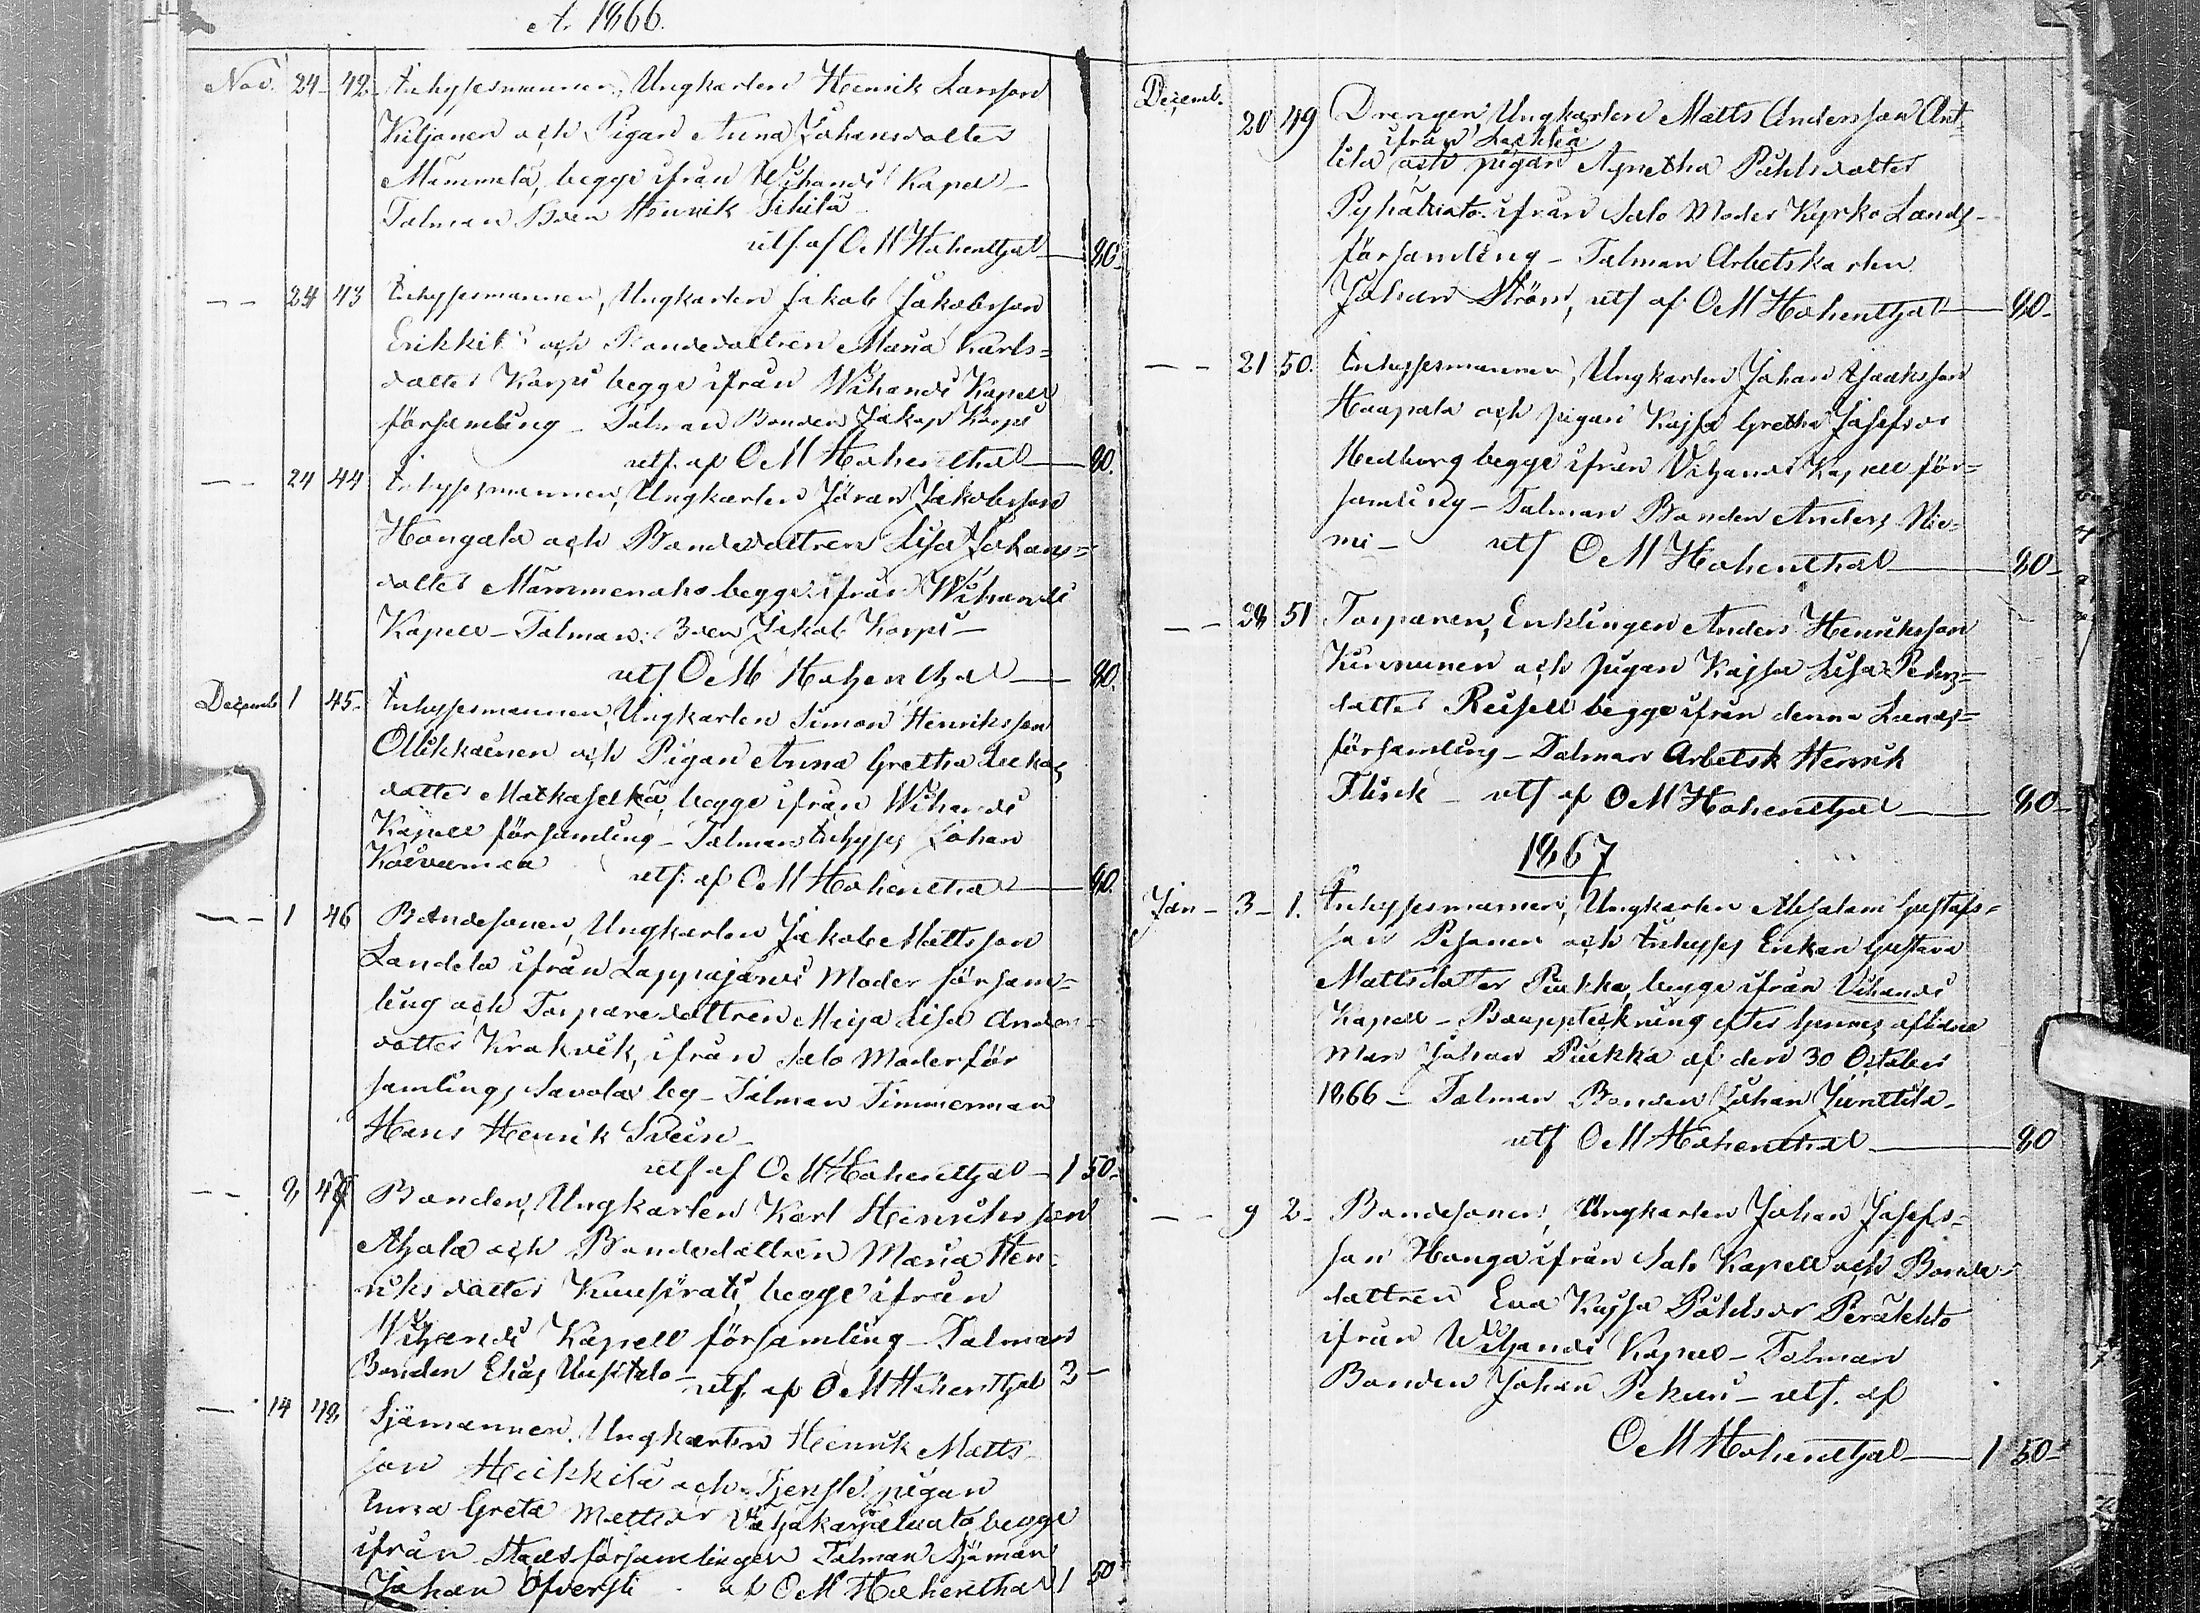 A. 1866.
Nov. 24 42 Inhysesmannen, Ungkarlen Henrik Larsson
Kiljanen och Pigan Anna Johansdotter
Mämmelä, begge ifrån Wihandi Kapell
Talman Bden Henrik Pihlla
utf af O M Hohenthal 80
— — 24 43 Inhysesmannen, Ungkarlen Jakob Jakobsson
Erikkilä och Bondedottren Maria Karls=
dotter Korpi begge ifrån Wihandi Kapell
församling – Talman Bonden Jakop Korpi
utf. af O M Hohenthal 80.
— — 24 44 Inhysesmannen, Ungkarlen Jöran Jakobsson
Hongala och Bondedottren Lisa Johans=
dotter Mämmenaho begge ifrån Wihandi
Kapell – Talman: Bden Jakob Korpi –
utf O M Hohenthal 80.
Decemb 1 45 Inhysesmannen, Ungkarlen Simon Henriksson
Ollikkainen och Pigan Anna Gretha Lukas
dotter Matkaselkä, begge ifrån Wihandi
Kapell församling – Talman Inhyses Johan
Koivumaa utf. af O M Hohenthal 80.
— — 1 46 Bondesonen, Ungkarlen Jakob Mattsson
Landela ifrån Lappajärvi Moder försam=
ling och Torparedottren Maja Lisa Anders=
dotter Krakvik, ifrån Salo Moderför
samlings Savolax by – Talman Timmerman
Hans Henrik Svein –
utf af O M Hohenthal 1 50
— — 8 47 Bonden, Ungkarlen Karl Henriksson
Ahola och Bondedottren Maria Hen=
riksdotter Kuusirati, begge ifrån
Wihandi Kapell församling – Talman
Bonden Elias Uusitalo – utf. af O M Hohenthal 2 –
— 14 48 Sjömannen, Ungkarlen Henrik Matts=
son Heikkilä och Tjenstepigan
Anna Greta Mattsdr begge
ifrån Stadsförsamlingen Talman Sjöman
Johan Öfversti af O M Hohenthal 1 50
Decemb. 20 49 Drengen, Ungkarlen Matts Andersson Ant=
ifrån
tila och pigan Agnetha Påhlsdotter
Pyhäluoto ifrån Salo Moder Kyrko Lands=
församling – Talman Arbetskarlen
Johan Ström, utf af O M Hohenthal 80
— — 21 50. Inhysesmannen, Ungkarlen Johan Isaksson
Haapala och pigan Kajsa Gretha Josefsdr
Hedborg begge ifrån Vihandi Kapell för=
samling – Talman Bonden Anders Nie=
mi – utf O M Hohenthal 80
— — 28 51 Torparen, Enklingen Anders Henriksson
Kinnunen och pigan Kajsa Lisa Peders=
dotter Reisell begge ifrån denna Lands=
församling – Talman Arbetsk Henrik
Flink – utf af O M Hohenthal 80
1867
Jan – 3 – 1. Inhysesmannen, Ungkarlen Abesalom Gustafs=
son Pesonen och Inhyses Enkan Gustava
Mattsdotter Pukka, begge ifrån Vihandi
Kapell – Bouppteckning efter hennes aflidne
man Johan Pukka af den 30 October
1866 – Talman Bonden Johan Junttila.
utf O M Hohenthal 80
— — 9 2 – Bondesonen, Ungkarlen Johan Josefs=
son Honga ifrån Salo Kapell och Bonde=
dottren Eva Kajsa Påhlsdr Peräkkto
ifrån Wihandi Kapell – Talman
Bonden Johan Pekuri – utf. af
O M Hohenthal 1 50